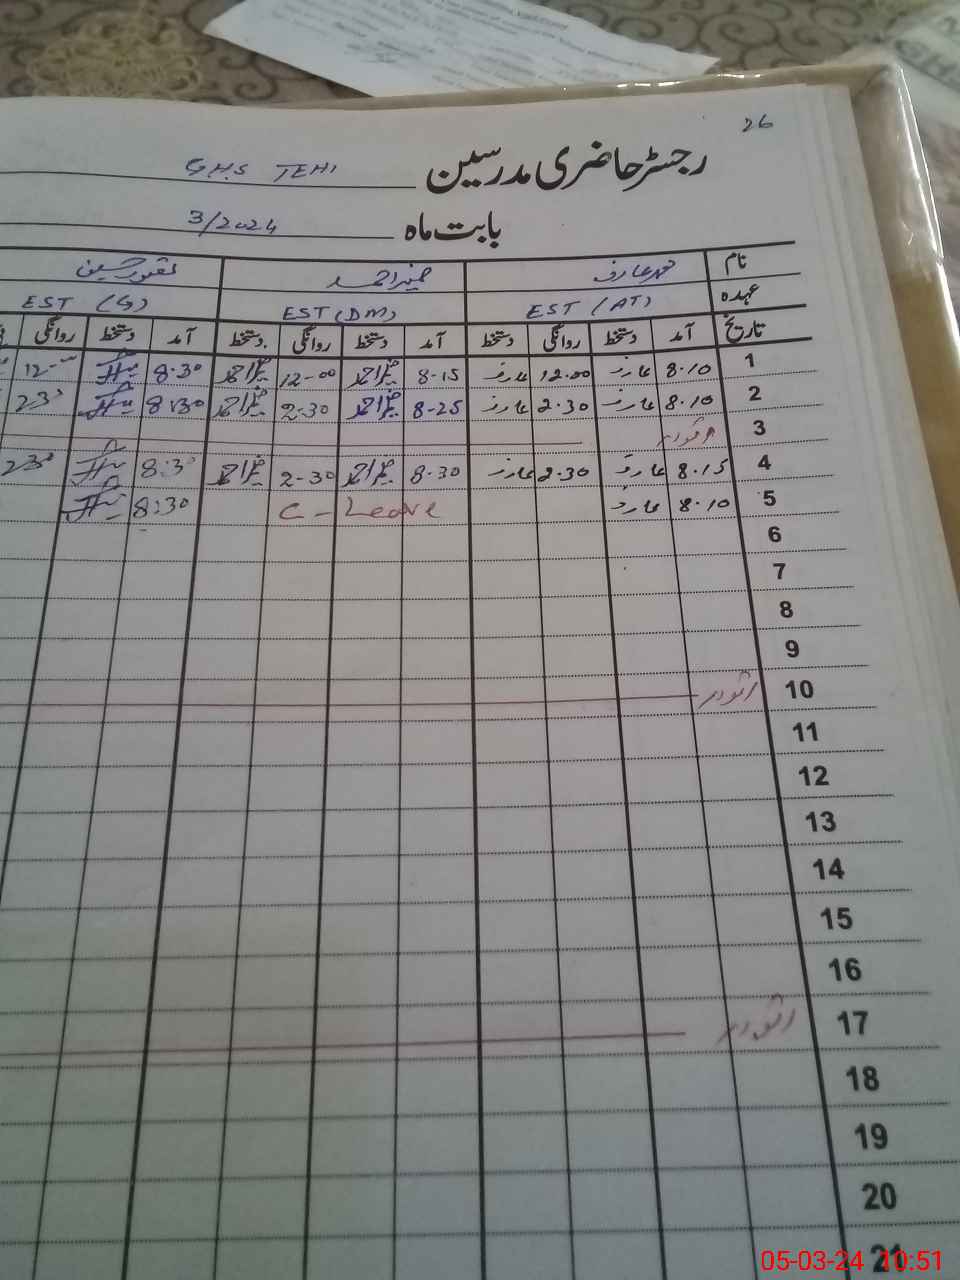 26
رجسٹر حاضری مدرسین GHS TEHI
بابت ماہ 3/2024
نام محمد عارف ضمیر احمد
عہدہ EST (AT) EST (DM) EST (G)
تاریخ آمد دستخط روانگی دستخط آمد دستخط روانگی دستخط آمد دستخط روانگی
1 8.10 عارف 12.00 عارف 8-15 ضمیر احمد 12-00 ضمیر احمد 8.30 12-
2 8.10 عارف 2.30 عارف 8-25 ضمیر احمد 2-30 ضمیر احمد 8:30 230
3 اتوار
4 8.15 عارف 2.30 عارف 8.30 ضمیر احمد 2-30 ضمیر احمد 8:30 230
5 8.10 عارف C-Leave 8:30
6
7
8
9
10 اتوار
11
12
13
14
15
16
17 اتوار
18
19
20
21
05-03-24 10:51